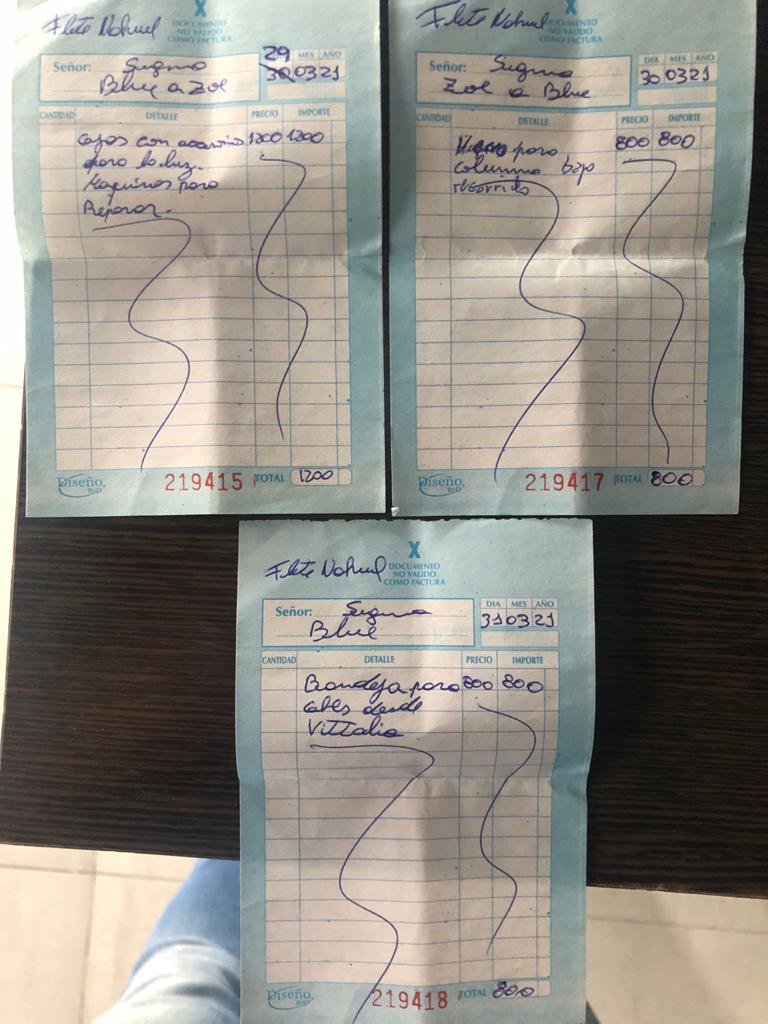 X
Flete Nahuel
DOCUMENTO
NO VALIDO
COMO FACTURA
Señor: Sugma
Blue a Zoe
29
MES AÑO
30 03 21
CANTIDAD DETALLE PRECIO IMPORTE
Cajas con accesorios 1200 1200
para la luz.
Maquinas para
Reparar.
Diseño
219415 TOTAL 1200
X
Flete Nahuel
DOCUMENTO
NO VALIDO
COMO FACTURA
Señor: Sugma
Zoe a Blue
DIA MES AÑO
30 03 21
CANTIDAD DETALLE PRECIO IMPORTE
para 800 800
columna bajo
recorrido
Diseño
219417 TOTAL 800
X
Flete Nahuel
DOCUMENTO
NO VALIDO
COMO FACTURA
Señor: Sugma
Blue
DIA MES AÑO
31 03 21
CANTIDAD DETALLE PRECIO IMPORTE
Bandeja para 800 800
cables desde
Vittalia
Diseño
219418 TOTAL 800